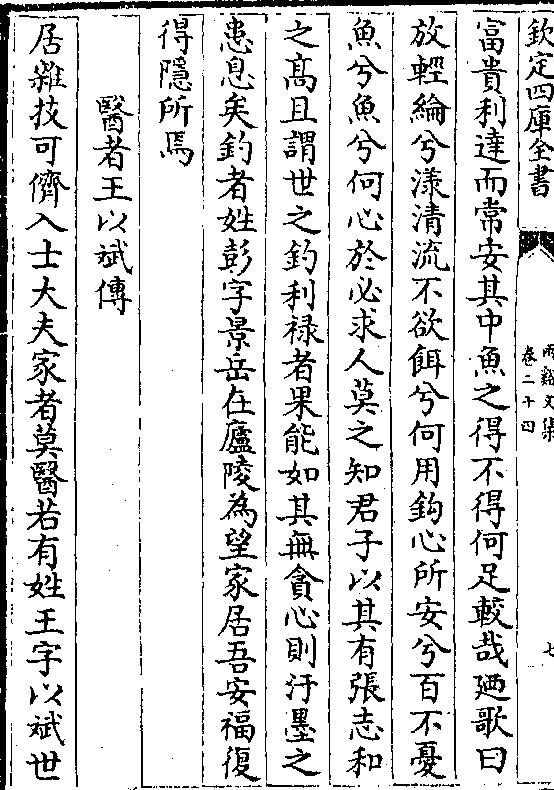 欽定四庫全書
兩谿文集
卷二十四
七
富貴利達而常安其中魚之得不得何足較哉廼歌曰
放輕綸兮漾清流不欲餌兮何用鈎心所安兮百不憂
魚兮魚兮何心於必求人莫之知君子以其有張志和
之髙且謂世之釣利祿者果能如其無貪心則汙墨之
患息矣釣者姓彭字景岳在廬陵為望家居吾安福復
得隱所焉
醫者王以斌傳
居雜技可儕入士大夫家者莫醫若有姓王字以斌世